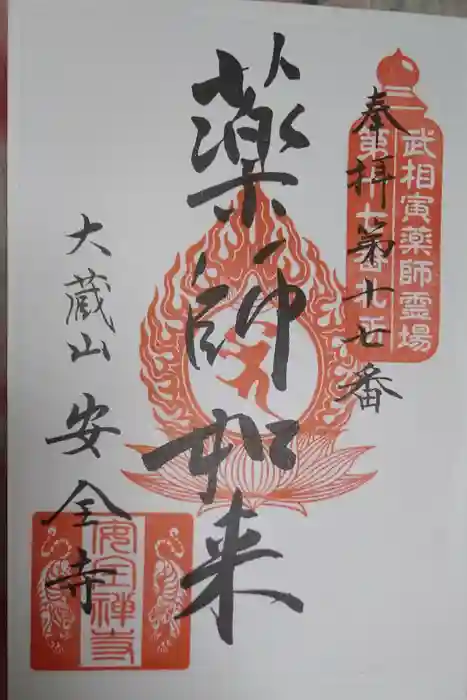 奉拝第十七番
武相寅薬師霊場
第十七番札所
薬師如来
大蔵山 安全寺
安全禅寺